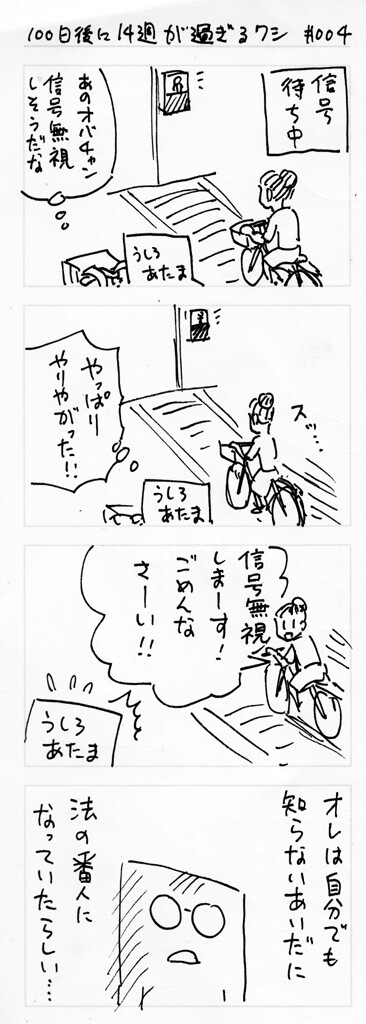 100日後に14週が過ぎるワシ #004
信号
待ち中
あのオバチャン
信号無視
しそうだな
うしろ
あたま
ズッ…
やっぱり
やりやがった!!
うしろ
あたま
信号無視
しまーす!
ごめんな
さーい!!
うしろ
あたま
オレは自分でも
知らないあいだに
法の番人に
なっていたらしい…